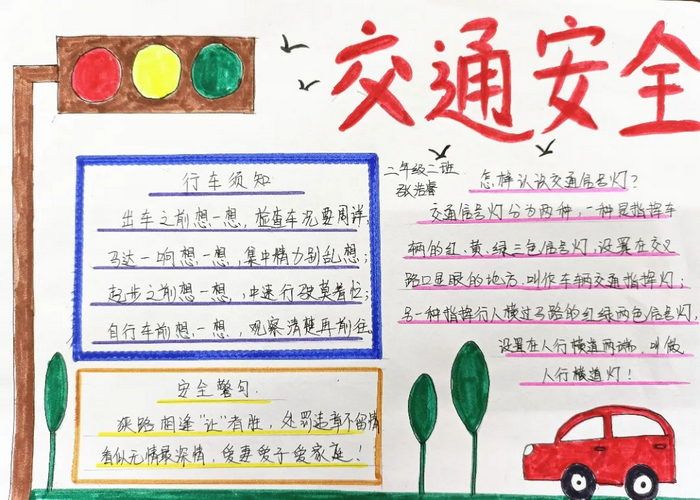 交通安全
二年级二班
行车须知
出车之前想一想,检查车况要周详;
马达一响想一想,集中精力别乱想;
起步之前想一想,中速行驶莫着忙;
自行车前想一想,观察清楚再前往
安全警句.
狭路相逢“让”者胜,处罚违章不留情
看似无情最深情,爱妻爱子爱家庭!
怎样认识交通信号灯?
交通信号灯分为两种,一种是指挥车
辆的红、黄、绿三色信号灯,设置在交叉
路口显眼的地方,叫作车辆交通指挥灯;
另一种指挥行人横过马路的红绿两色信号灯,
设置在人行横道两端,叫做
人行横道灯!